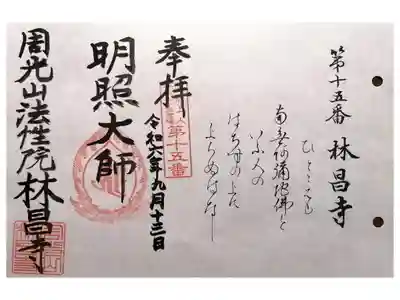 第十五番 林昌寺
南無阿彌陀佛と
いふ人の
はちすの上に
のほらぬはなし
奉拝
第十五番
令和六年九月十三日
明照大師
周光山法性院林昌寺